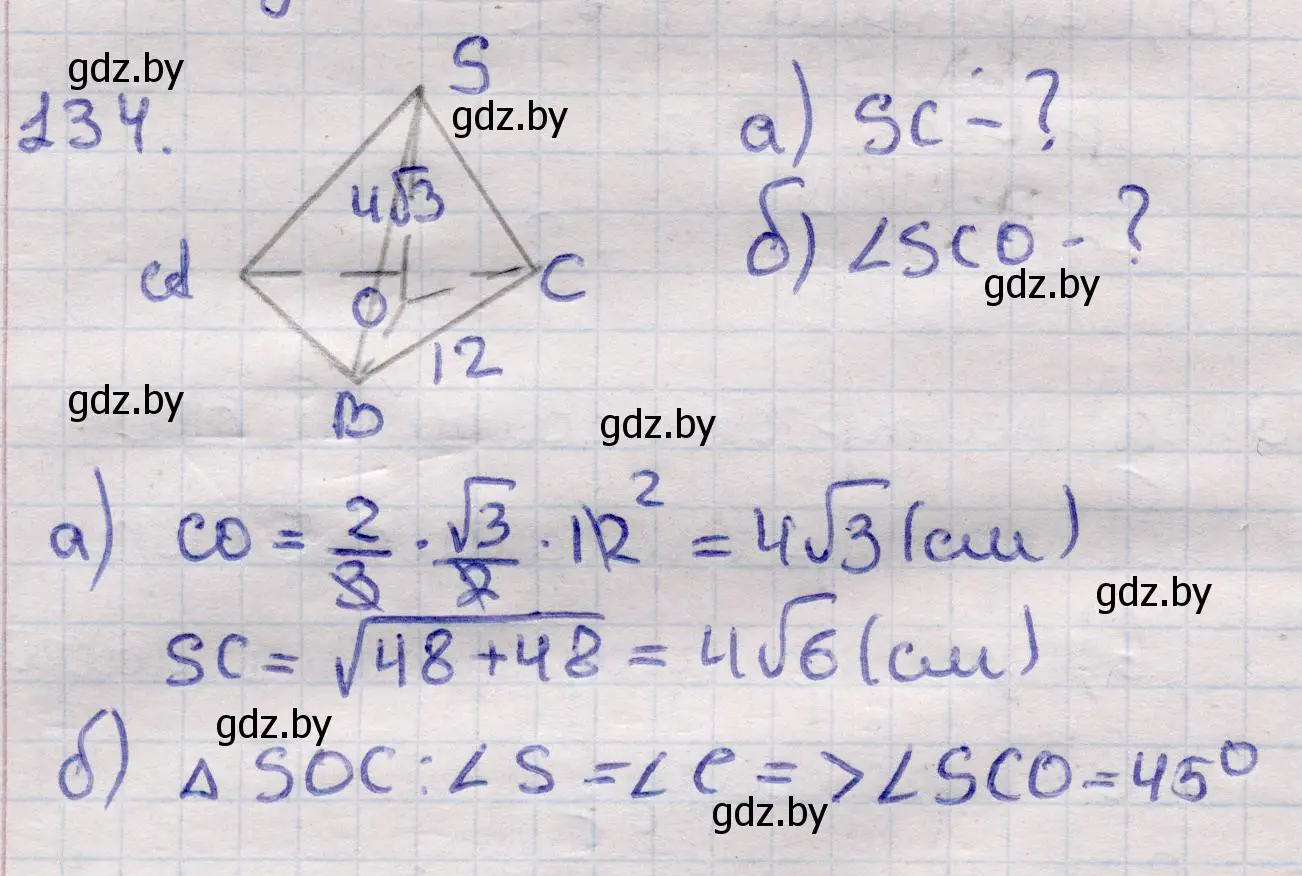 gdz.by
134.
S
gdz.by
4√3
A
O
C
12
B
а) SC - ?
б) ∠SCO - ?
gdz.by
gdz.by
gdz.by
а) CO = 2/3 · √3/2 · 12² = 4√3 (см)
gdz.by
SC = √48+48 = 4√6 (см)
gdz.by
б) △ SOC : ∠S = ∠C => ∠SCO = 45°
gdz.by